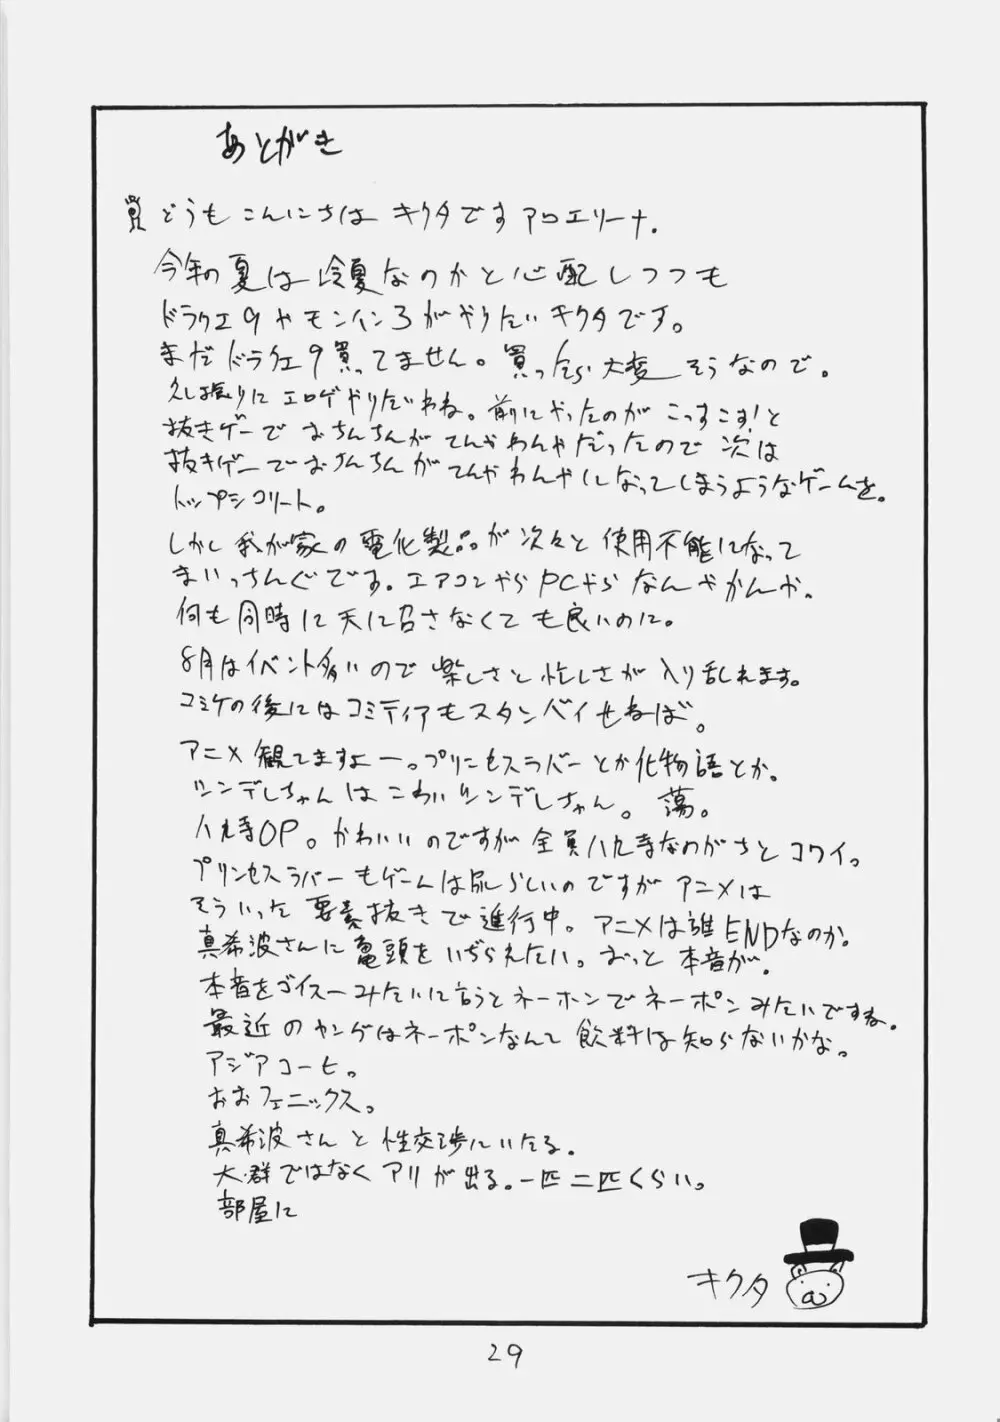 あとがき
どうもこんにちは キクタです アロエリーナ.
今年の夏は冷夏なのかと心配しつつも
ドラクエ9やモンハン3がやりたいキクタです。
まだドラクエ9買ってません。買ったら大変そうなので。
久し振りにエロゲやりたいわね。前にやったのがこっすこす!と
抜きゲーでおちんちんがてんやわんやだったので次は
抜きゲーでおちんちんがてんやわんやになってしまうようなゲームを。
トップシコリート。
しかし我が家の電化製品が次々と使用不能になって
まいっちんぐです。エアコンやらPCやらなんやかんや.
何も同時に天に召さなくても良いのに。
8月はイベント多いので楽しさと忙しさが入り乱れます。
コミケの後にはコミティアもスタンバイせねば。
アニメ観てますよー。プリンセスラバーとか化物語とか.
ツンデレちゃんはこわいツンデレちゃん。蕩。
八九寺OP。かわいいのですが全員八九寺なのがちとコワイ。
プリンセスラバーもゲームは尿らしいのですがアニメは
そういった要素抜きで進行中。アニメは誰ENDなのか.
真希波さんに亀頭をいぢらえたい。おっと本音が.
本音をゴイスーみたいに言うとネーホンでネーポンみたいですね.
最近のヤングはネーポンなんて飲料は知らないかな。
アジアコーヒ。
おおフェニックス。
真希波さんと性交渉にいたる。
大群ではなくアリが出る。一匹二匹くらい。
部屋に
キクタ
29